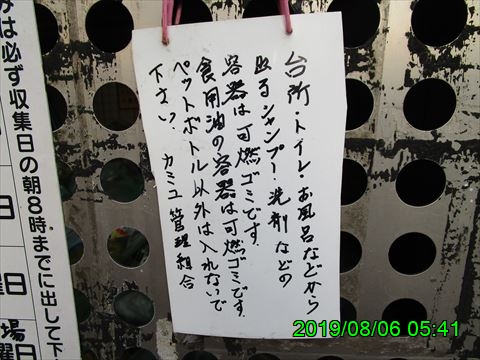 台所・トイレ・お風呂などから
出るシャンプー・洗剤などの
容器は可燃ゴミです.
食用油の容器は可燃ゴミです.
ペットボトル以外は入れないで
下さい. カミユ管理組合
は必ず収集日の朝8時までに出して下
日
日
曜日
場
曜
2019/08/06 05:41